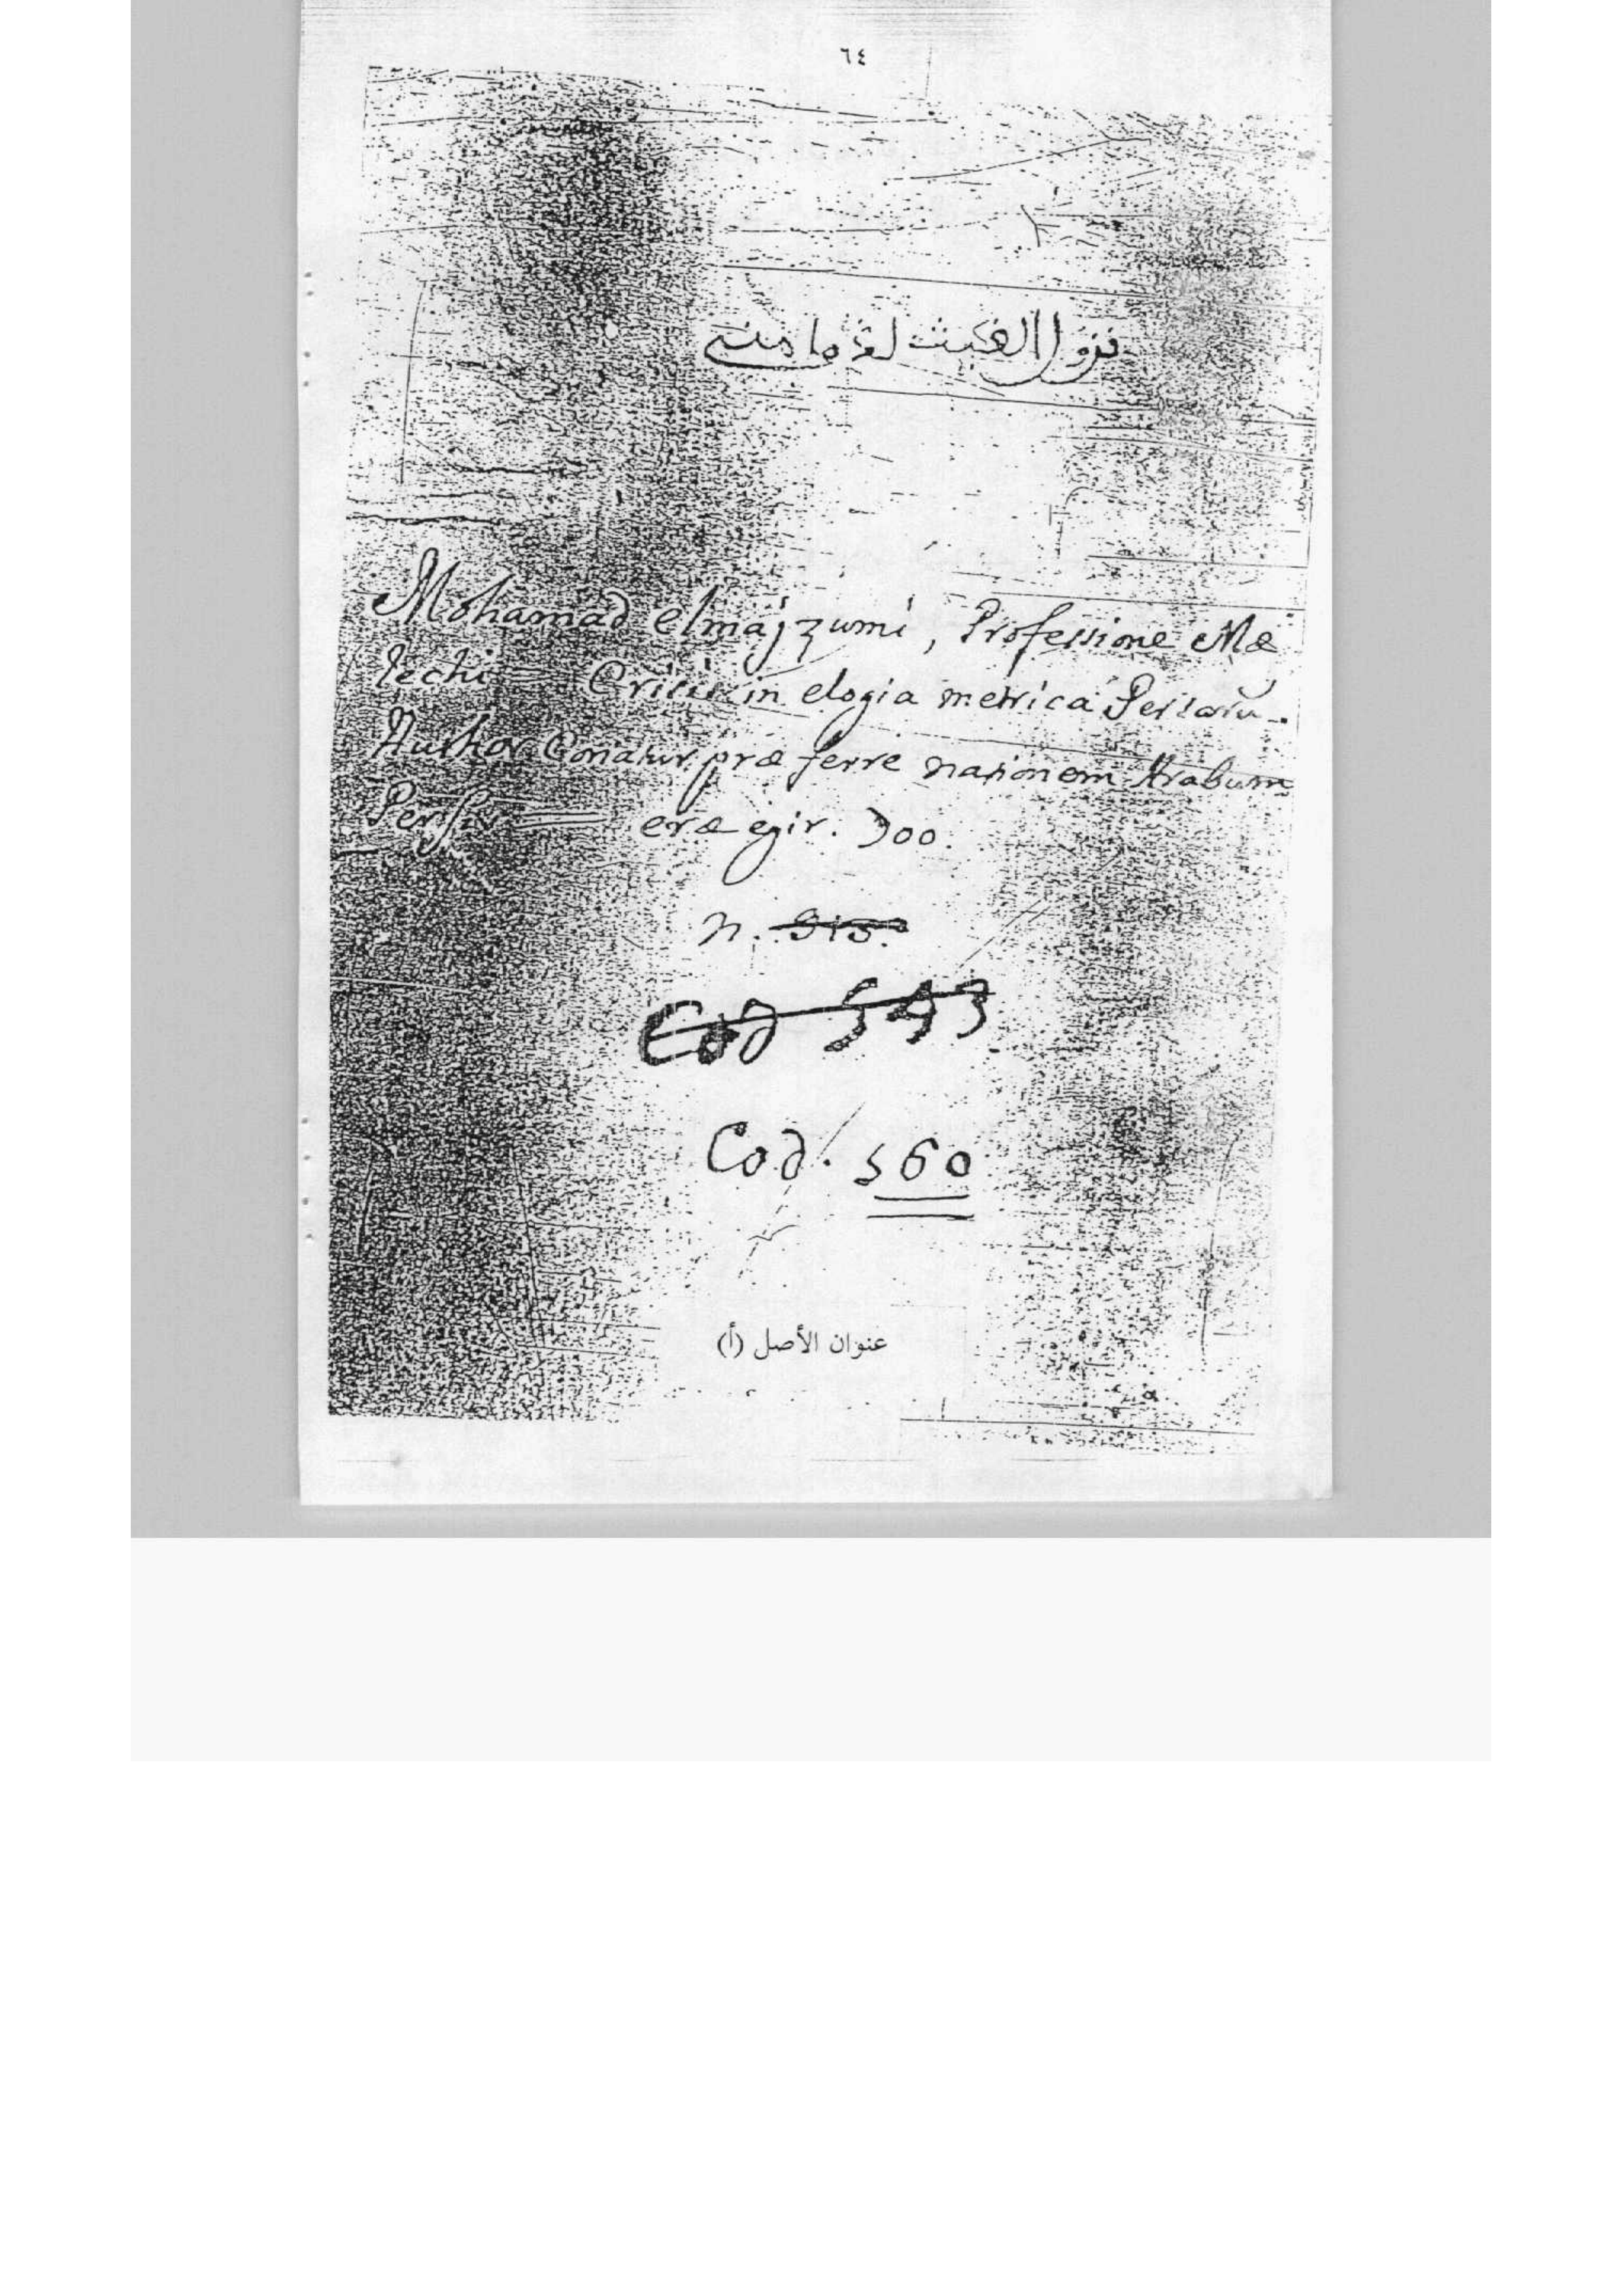 ٦٤
نزول الغيث لدماميني
Mohamad elmajzumi, Professione Mæ
lechi = Crisis in elogia metrica Persarū.
Author Conatur præferre nationem Arabum
Persis = eræ egir. 700.
N. 513.
Cod 543
Cod. 560
عنوان الأصل (أ)